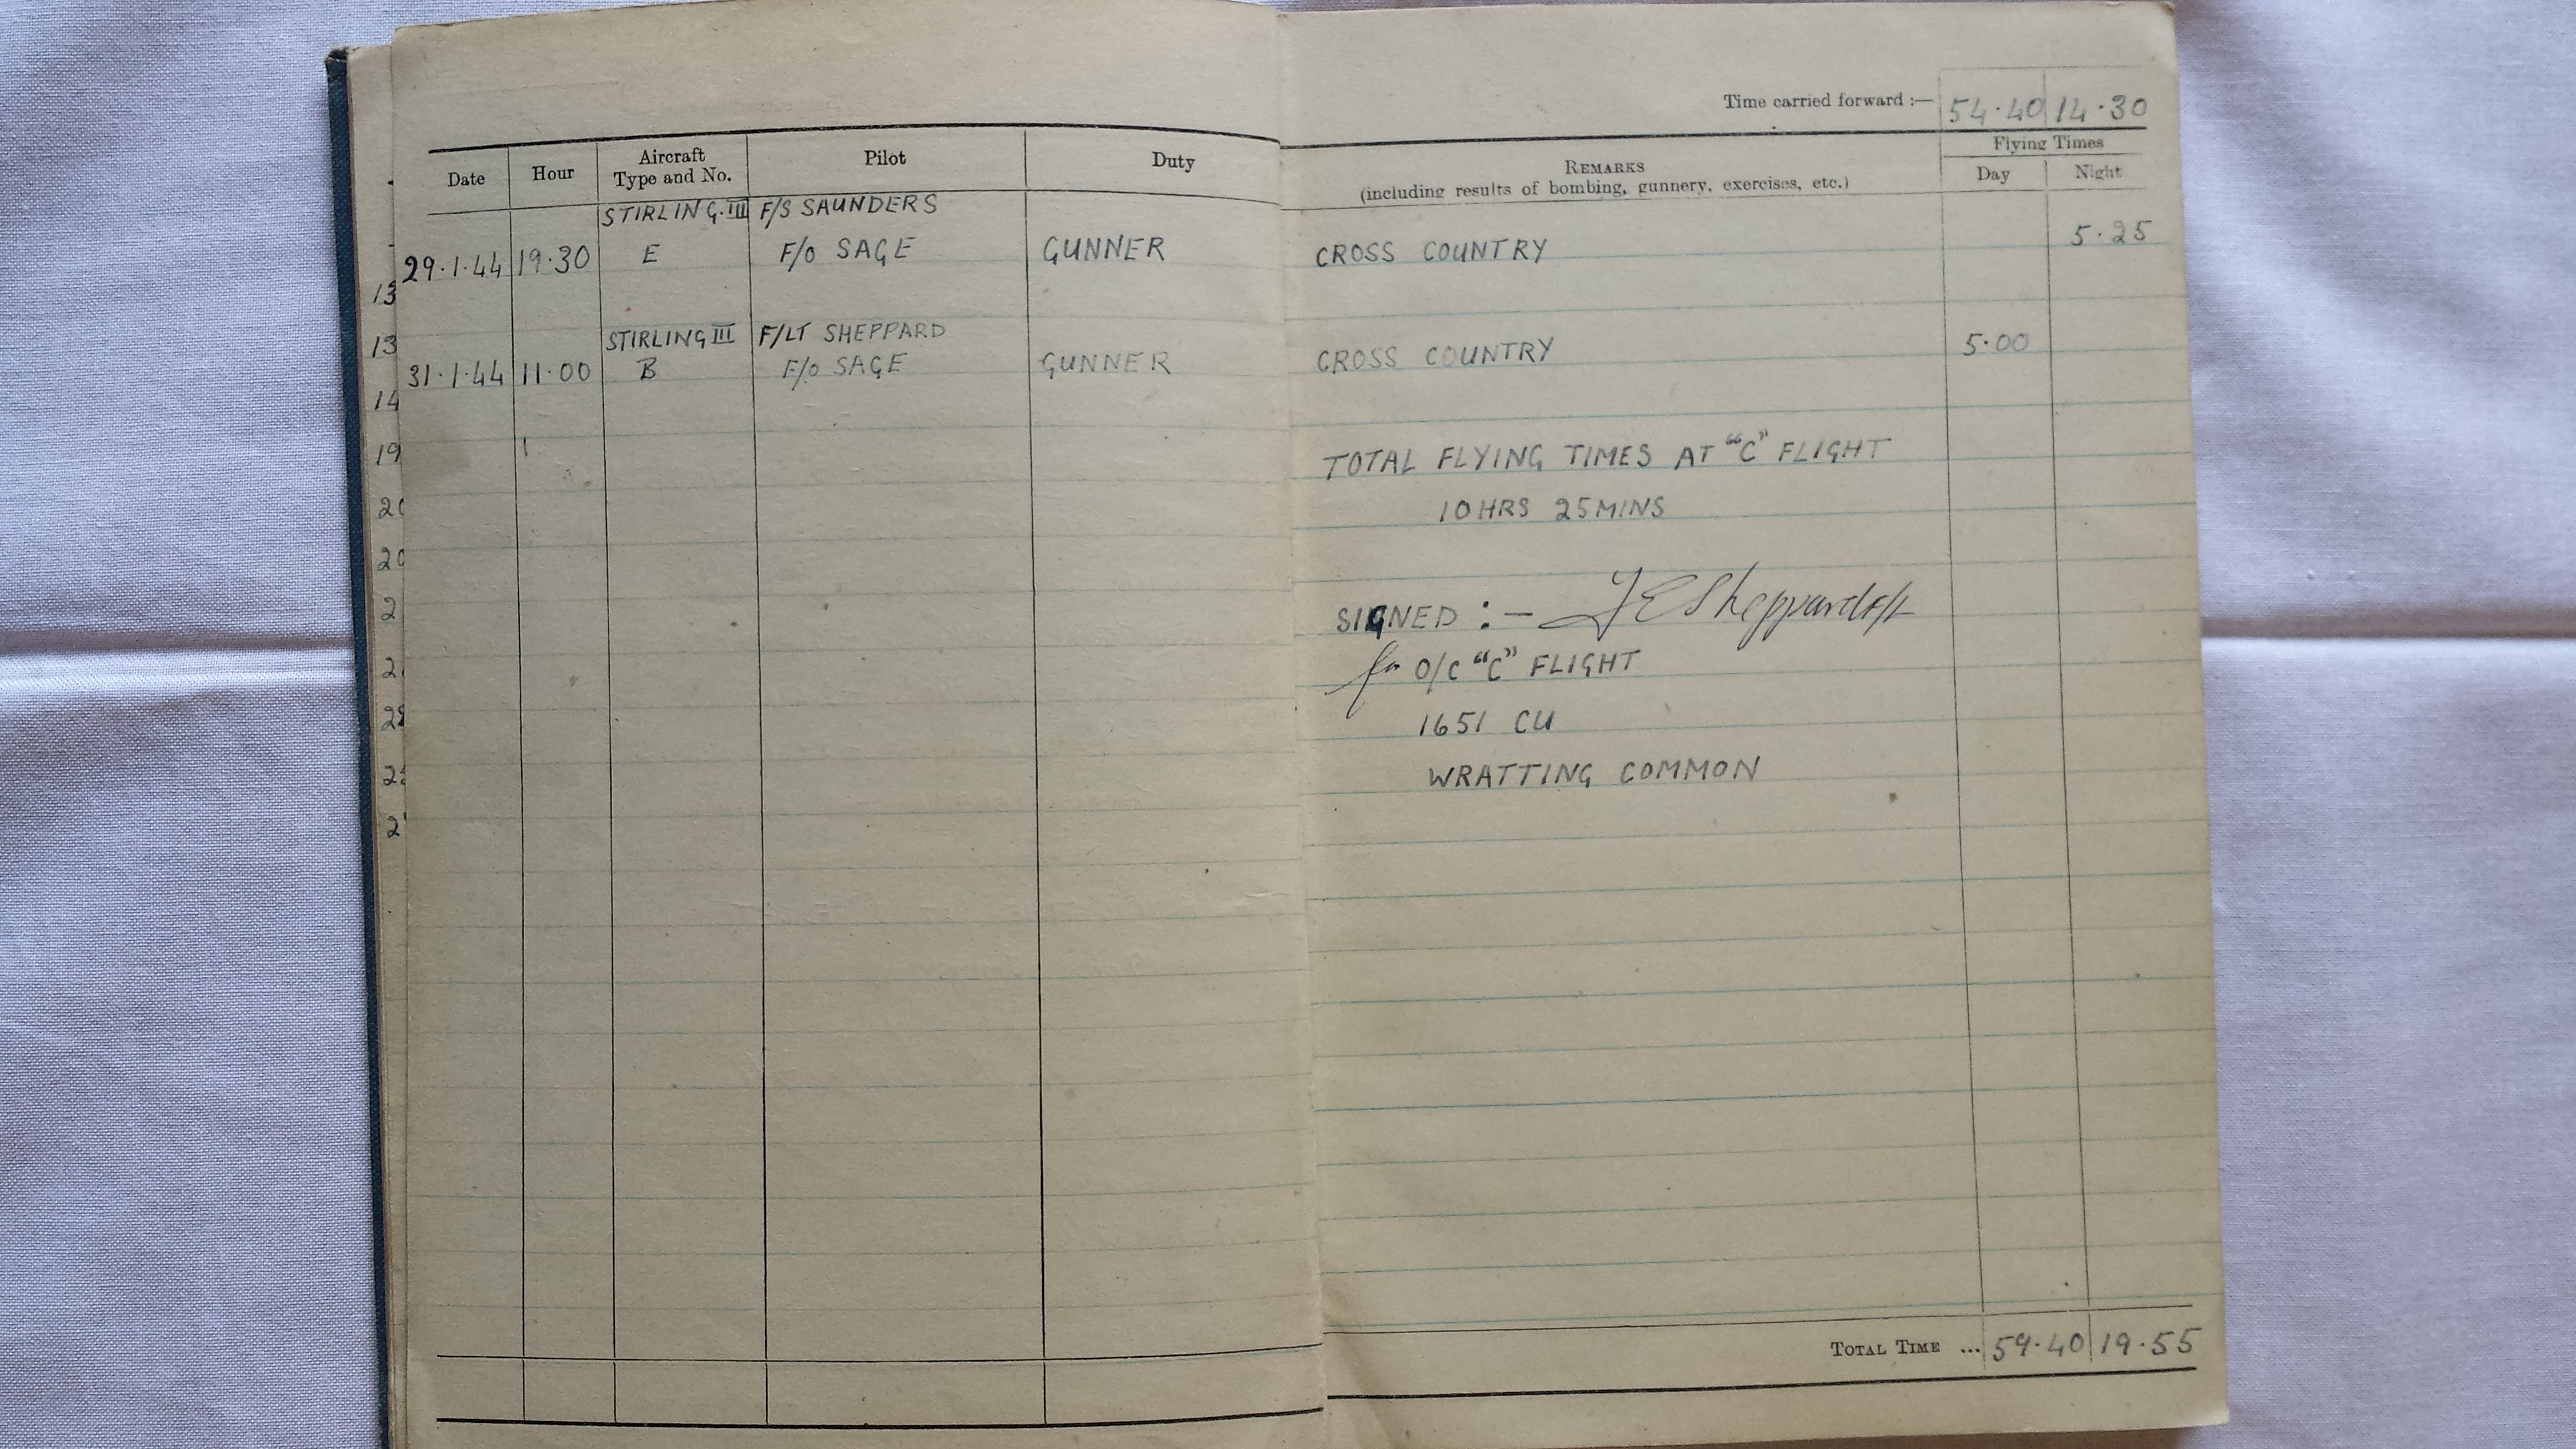 Time carried forward :— 54·40 14·30
Date Hour Aircraft Type and No. Pilot Duty REMARKS (including results of bombing, gunnery, exercises, etc.) Flying Times Day Night
STIRLING.III F/S SAUNDERS
29·1·44 19·30 E F/O SAGE GUNNER CROSS COUNTRY 5·25
13
STIRLING III F/LT SHEPPARD
13
31·1·44 11·00 B F/O SAGE GUNNER CROSS COUNTRY 5·00
14
19
TOTAL FLYING TIMES AT "C" FLIGHT
20
10 HRS 25 MINS
20
2
SIGNED :— J E Sheppard F/L
2
for O/C "C" FLIGHT
28
1651 CU
2
WRATTING COMMON
2
TOTAL TIME ... 59·40 19·55